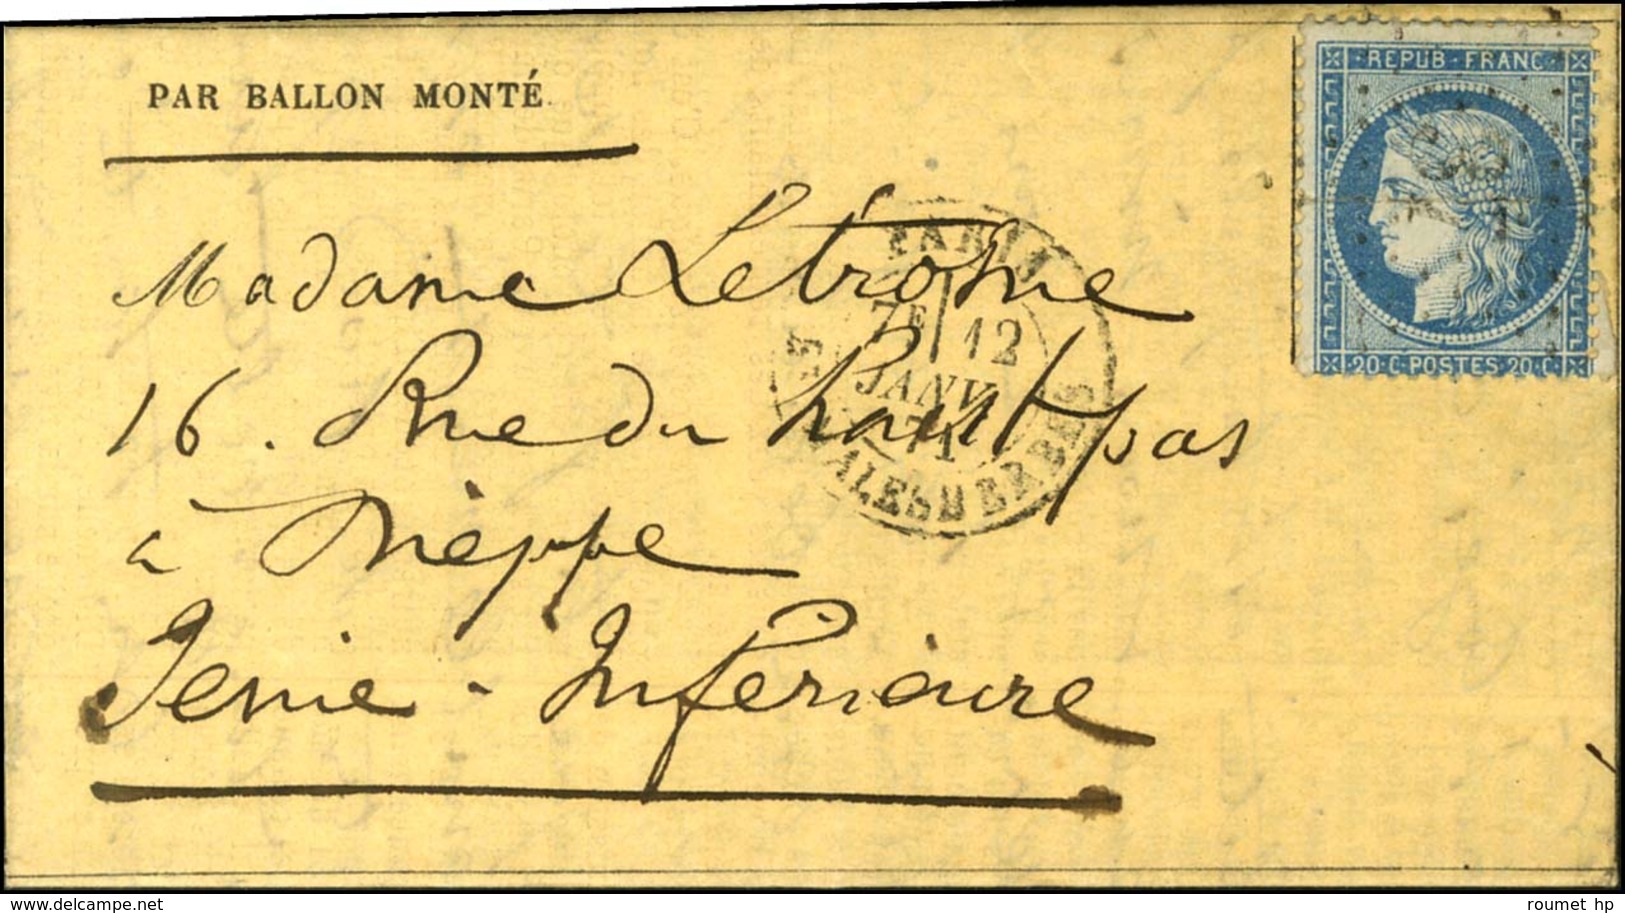 PAR BALLON MONTÉ.
REPUB. FRANC.
20.C. POSTES 20.C.
Madame Letrosne
16. Rue du haut pas
à Dièppe
Seine-Inférieure
PARIS
7E 12
JANV.
71
MALESHERBES
delcampe.net
roumet hp